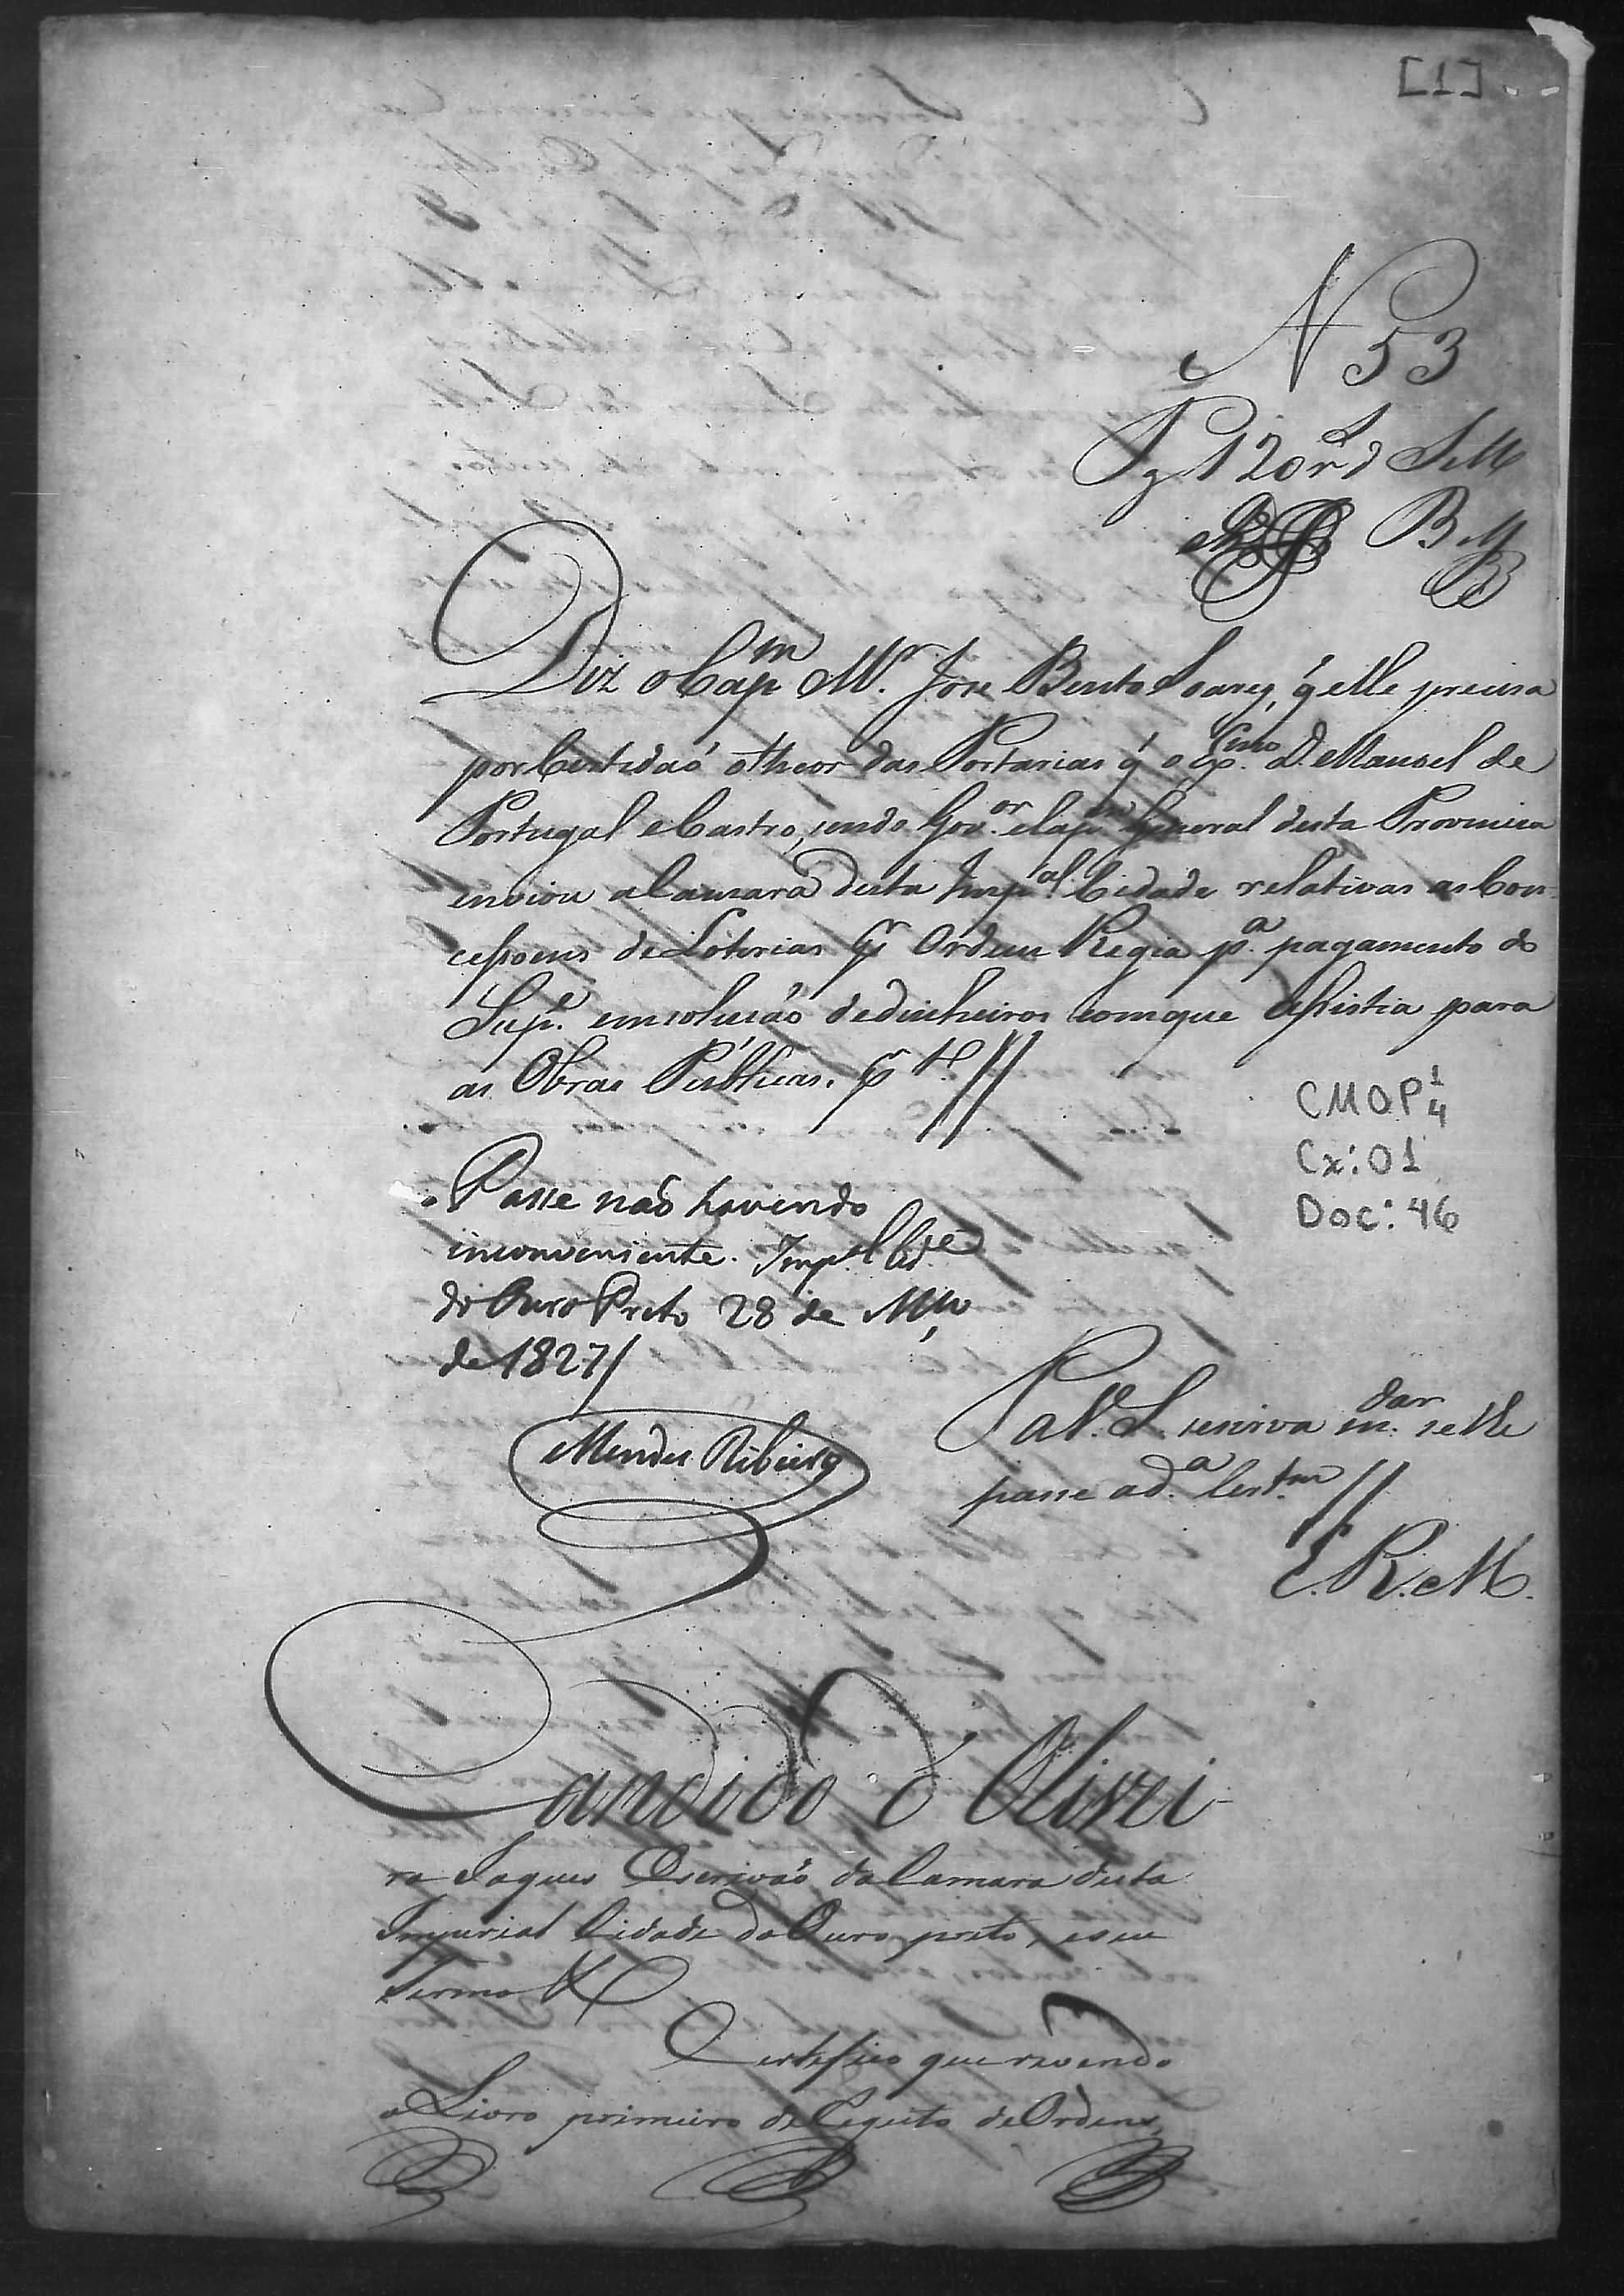 [1]
N 53
Pg 120 r.s
Diz o Cap.m M.r Jose Bento Soares, q̃ elle precisa
por Certidaõ o theor das Portarias q̃ o Ex.mo D. Manoel de
Portugal e Castro, sendo Gov.or e Cap.m General desta Provincia
enviou a Camara desta Imp.al Cidade relativas as Con-
cessoens de Loterias p.r Ordem Regia p.a pagamento do
Sup.e em soluçaõ de dinheiros com que assistia para
as Obras Publicas. P. t.o //
CMOP 1/4
Cx: 01
Doc: 46
Passe naõ havendo
inconveniente. Imp.al Cid.e
do Ouro Preto 28 de M.ço
de 1827/
Mendes Ribeiro
P a V. S. seja servido mandar se lhe
passe a d.a Cert.am //
E. R. M.
Candido d' Olivei-
ra Jaques Escrivaõ da Camara desta
Imperial Cidade do Ouro preto, e seu
Termo &
Certifico que revendo
o Livro primeiro de Registo de Ordens